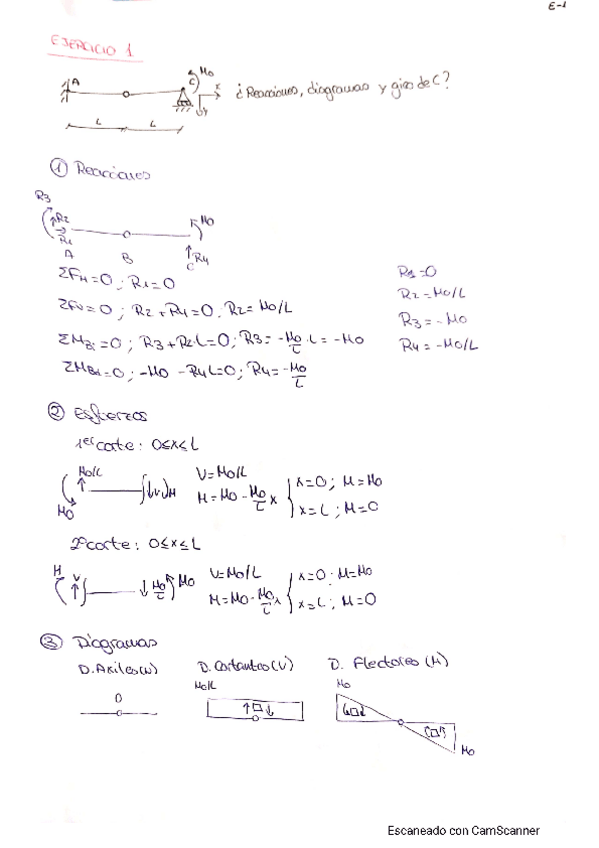 E-1
EJERCICIO 1
A C Mo x y ¿Reacciones, diagramas y giros de C?
L L
① Reacciones
R3
R2 Mo
R1 R4
A B C
ΣFH=0 ; R1=0 R1=0
ΣFV=0 ; R2+R4=0. R2= Mo/L R2=Mo/L
ΣMBi=0 ; R3+R2·L=0; R3= -Mo/L·L= -Mo R3=-Mo
ΣMBd=0; -Mo -R4L=0; R4=-Mo/L R4=-Mo/L
② Esfuerzos
1er corte: 0≤x≤L
Mo/L V M V=Mo/L x=0; M=Mo
Mo M=Mo-Mo/L x x=L; M=0
2º corte: 0≤x≤L
M V Mo/L Mo V=Mo/L x=0; M=Mo
M=Mo-Mo/L x x=L; M=0
③ Diagramas
D. Axiles(N) D. Cortantes(V) D. Flectores (M)
0 Mo/L Mo
Mo
Escaneado con CamScanner